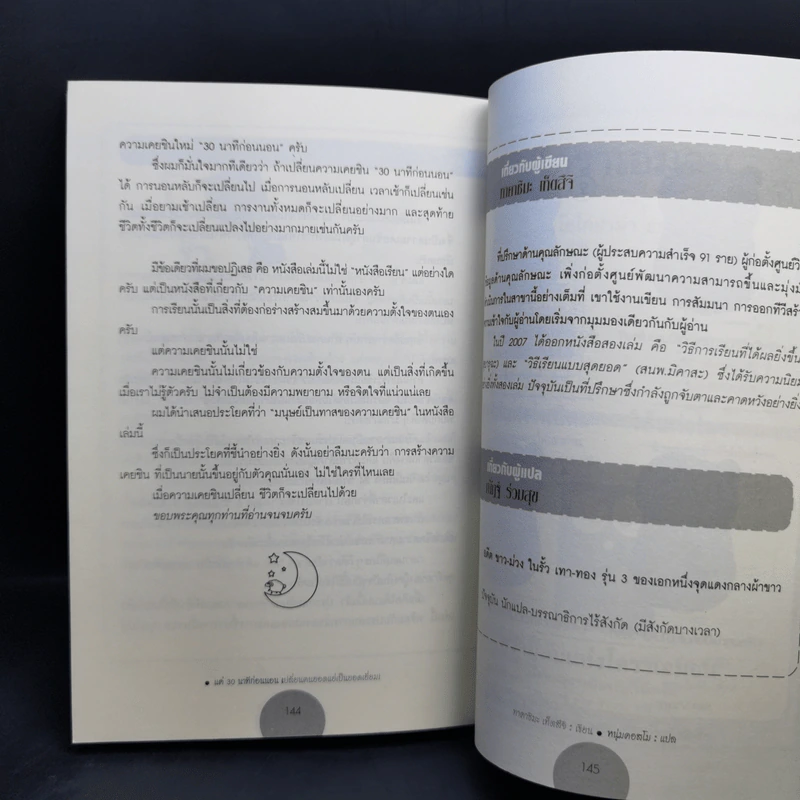 ความเคยชินใหม่ "30 นาทีก่อนนอน" ครับ
ซึ่งผมก็มั่นใจมากทีเดียวว่า ถ้าเปลี่ยนความเคยชิน "30 นาทีก่อนนอน"
ได้ การนอนหลับก็จะเปลี่ยนไป เมื่อการนอนหลับเปลี่ยน เวลาเช้าก็เปลี่ยนเช่น
กัน เมื่อยามเช้าเปลี่ยน การงานทั้งหมดก็จะเปลี่ยนอย่างมาก และสุดท้าย
ชีวิตทั้งชีวิตก็จะเปลี่ยนแปลงไปอย่างมากมายเช่นกันครับ
มีข้อเดียวที่ผมขอปฏิเสธ คือ หนังสือเล่มนี้ไม่ใช่ "หนังสือเรียน" แต่อย่างใด
ครับ แต่เป็นหนังสือที่เกี่ยวกับ "ความเคยชิน" เท่านั้นเองครับ
การเรียนนั้นเป็นสิ่งที่ต้องก่อร่างสร้างสมขึ้นมาด้วยความตั้งใจของตนเอง
ครับ
แต่ความเคยชินนั้นไม่ใช่
ความเคยชินนั้นไม่เกี่ยวข้องกับความตั้งใจของตน แต่เป็นสิ่งที่เกิดขึ้น
เมื่อเราไม่รู้ตัวครับ ไม่จำเป็นต้องมีความพยายาม หรือจิตใจที่แน่วแน่เลย
ผมได้นำเสนอประโยคที่ว่า "มนุษย์เป็นทาสของความเคยชิน" ในหนังสือ
เล่มนี้
ซึ่งก็เป็นประโยคที่ชี้นำอย่างยิ่ง ดังนั้นอย่าลืมนะครับว่า การสร้างความ
เคยชิน ที่เป็นนายนั้นขึ้นอยู่กับตัวคุณนั่นเอง ไม่ใช่ใครที่ไหนเลย
เมื่อความเคยชินเปลี่ยน ชีวิตก็จะเปลี่ยนไปด้วย
ขอบพระคุณทุกท่านที่อ่านจนจบครับ
● แค่ 30 นาทีก่อนนอน
144
เกี่ยวกับผู้เขียน
เท็ตสึจิ
ที่ปรึกษาด้านคุณลักษณะ (ผู้ประสบความสำเร็จ 91 ราย) ผู้ก่อตั้งศูนย์วิ
ด้านคุณลักษณะ เพิ่งก่อตั้งศูนย์พัฒนาความสามารถขึ้นและมุ่งมั่
ในสาขานี้อย่างเต็มที่ เขาใช้งานเขียน การสัมมนา การออกทีวีสร้า
เข้าใจกับผู้อ่านโดยเริ่มจากมุมมองเดียวกันกับผู้อ่าน
ในปี 2007 ได้ออกหนังสือสองเล่ม คือ "วิธีการเรียนที่ได้ผลยิ่งขึ้น
และ "วิธีเรียนแบบสุดยอด" (สนพ.มิคาสะ) ซึ่งได้รับความนิยม
ทั้งสองเล่ม ปัจจุบันเป็นที่ปรึกษาซึ่งกำลังถูกจับตาและคาดหวังอย่างยิ่ง
เกี่ยวกับผู้แปล
ร่วมสุข
ขาว-ม่วง ในรั้ว เทา-ทอง รุ่น 3 ของเอกหนึ่งจุดแดงกลางผ้าขาว
ปัจจุบัน นักแปล-บรรณาธิการไร้สังกัด (มีสังกัดบางเวลา)
: เขียน ● หนุ่มคอสโม : แปล
145